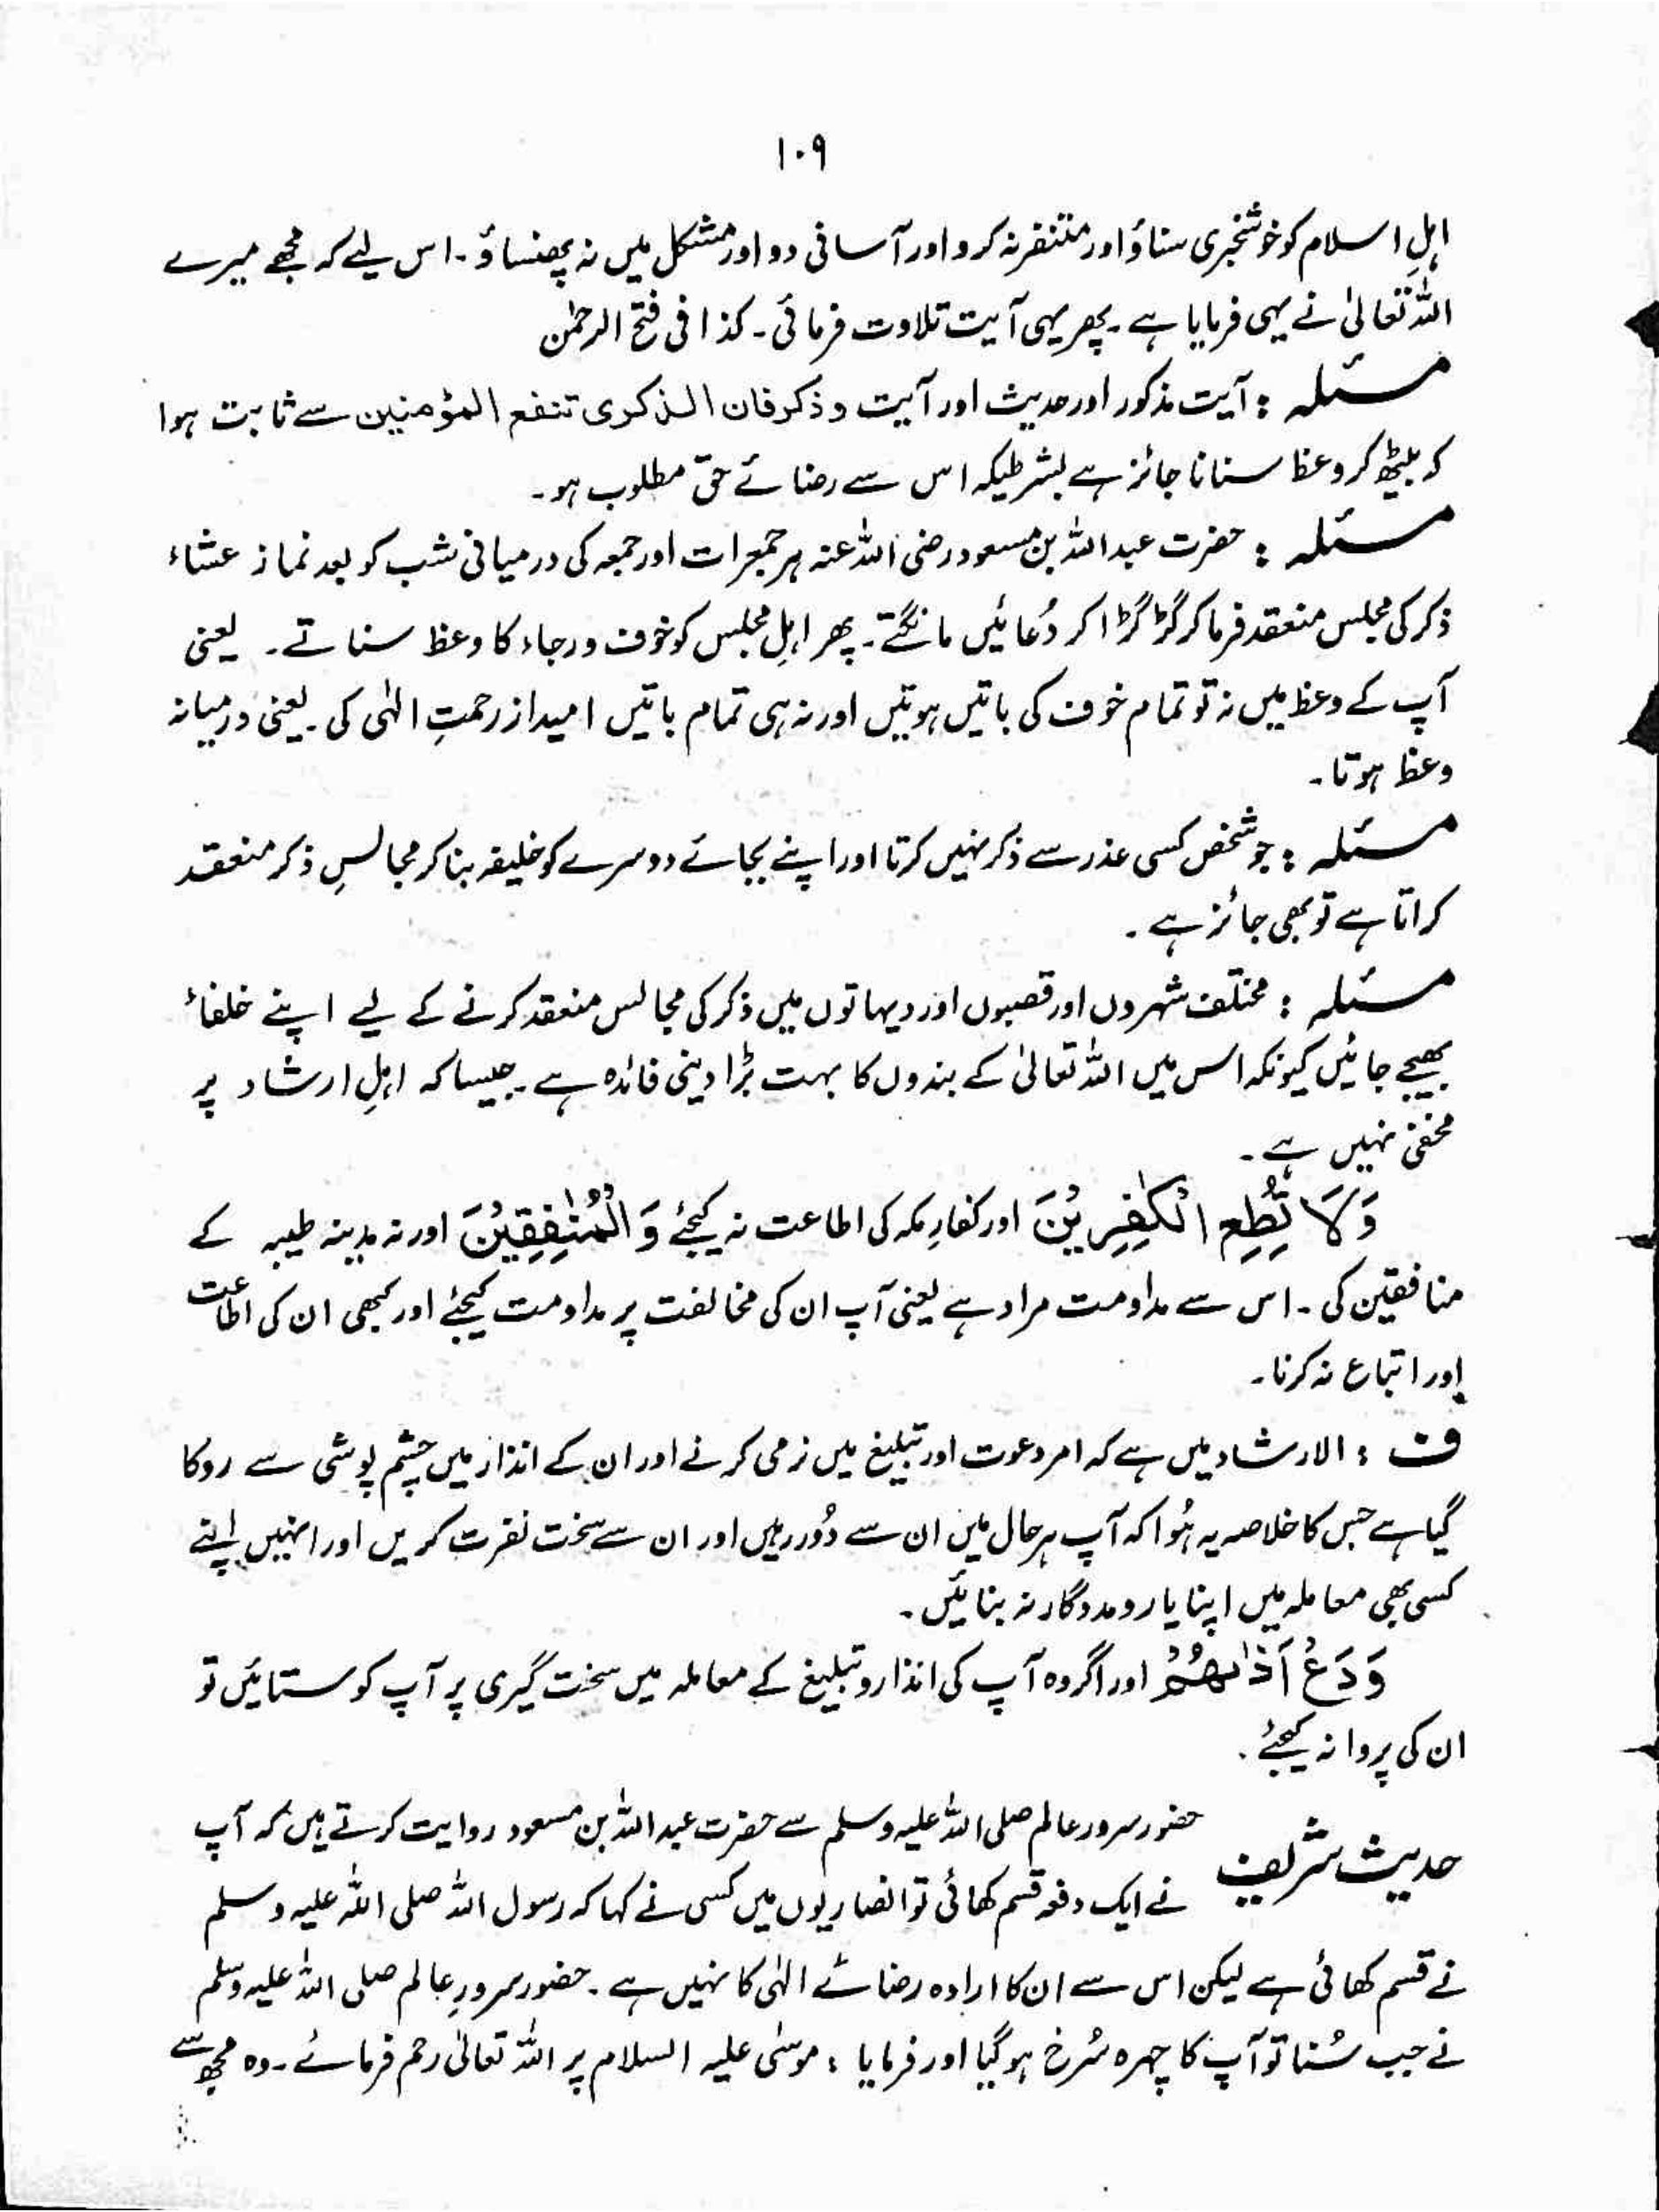 ۱۰۹
اہلِ اسلام کو خوشخبری سناؤ اور متنفر نہ کرو اور آسانی دو اور مشکل میں نہ پھنساؤ۔ اس لیے کہ مجھے میرے
اللہ تعالیٰ نے یہی فرمایا ہے۔ پھر یہی آیت تلاوت فرمائی۔ کذا فی فتح الرحمٰن
مسئلہ : آیت مذکور اور حدیث اور آیت و ذکر فان الذکری تنفع المؤمنین سے ثابت ہوا
کہ بیٹھ کر وعظ سنانا جائز ہے بشرطیکہ اس سے رضائے حق مطلوب ہو۔
مسئلہ : حضرت عبداللہ بن مسعود رضی اللہ عنہ ہر جمعرات اور جمعہ کی درمیانی شب کو بعد نماز عشاء
ذکر کی مجلس منعقد فرما کر گڑ گڑا کر دُعائیں مانگتے۔ پھر اہلِ مجلس کو خوف و رجاء کا وعظ سناتے۔ یعنی
آپ کے وعظ میں نہ تو تمام خوف کی باتیں ہوتیں اور نہ ہی تمام باتیں امید از رحمتِ الٰہی کی۔ یعنی درمیانہ
وعظ ہوتا۔
مسئلہ : جو شخص کسی عذر سے ذکر نہیں کرتا اور اپنے بجائے دوسرے کو خلیفہ بنا کر مجالسِ ذکر منعقد
کراتا ہے تو بھی جائز ہے۔
مسئلہ : مختلف شہروں اور قصبوں اور دیہاتوں میں ذکر کی مجالس منعقد کرنے کے لیے اپنے خلفاء
بھیجے جائیں کیونکہ اس میں اللہ تعالیٰ کے بندوں کا بہت بڑا دینی فائدہ ہے۔ جیسا کہ اہلِ ارشاد پر
مخفی نہیں ہے۔
وَلَا تُطِعِ الْكٰفِرِيْنَ اور کفارِ مکہ کی اطاعت نہ کیجئے وَالْمُنٰفِقِيْنَ اور نہ مدینہ طیبہ کے
منافقین کی۔ اس سے مداومت مراد ہے یعنی آپ ان کی مخالفت پر مداومت کیجئے اور کبھی ان کی اطاعت
اور اتباع نہ کرنا۔
ف : الارشاد میں ہے کہ امر دعوت اور تبلیغ میں نرمی کرنے اور ان کے انذار میں چشم پوشی سے روکا
گیا ہے جس کا خلاصہ یہ ہُوا کہ آپ ہر حال میں ان سے دُور رہیں اور ان سے سخت نفرت کریں اور انہیں اپنے
کسی بھی معاملہ میں اپنا یار و مددگار نہ بنائیں۔
وَدَعْ اَذٰىهُمْ اور اگر وہ آپ کی انذار و تبلیغ کے معاملہ میں سخت گیری پر آپ کو ستائیں تو
ان کی پروا نہ کیجئے۔
حدیث شریف حضور سرور عالم صلی اللہ علیہ وسلم سے حضرت عبداللہ بن مسعود روایت کرتے ہیں کہ آپ
نے ایک دفعہ قسم کھائی تو انصاریوں میں کسی نے کہا کہ رسول اللہ صلی اللہ علیہ وسلم
نے قسم کھائی ہے لیکن اس سے ان کا ارادہ رضائے الٰہی کا نہیں ہے۔ حضور سرورِ عالم صلی اللہ علیہ وسلم
نے جب سُنا تو آپ کا چہرہ سُرخ ہو گیا اور فرمایا : موسٰی علیہ السلام پر اللہ تعالیٰ رحم فرمائے۔ وہ مجھ سے